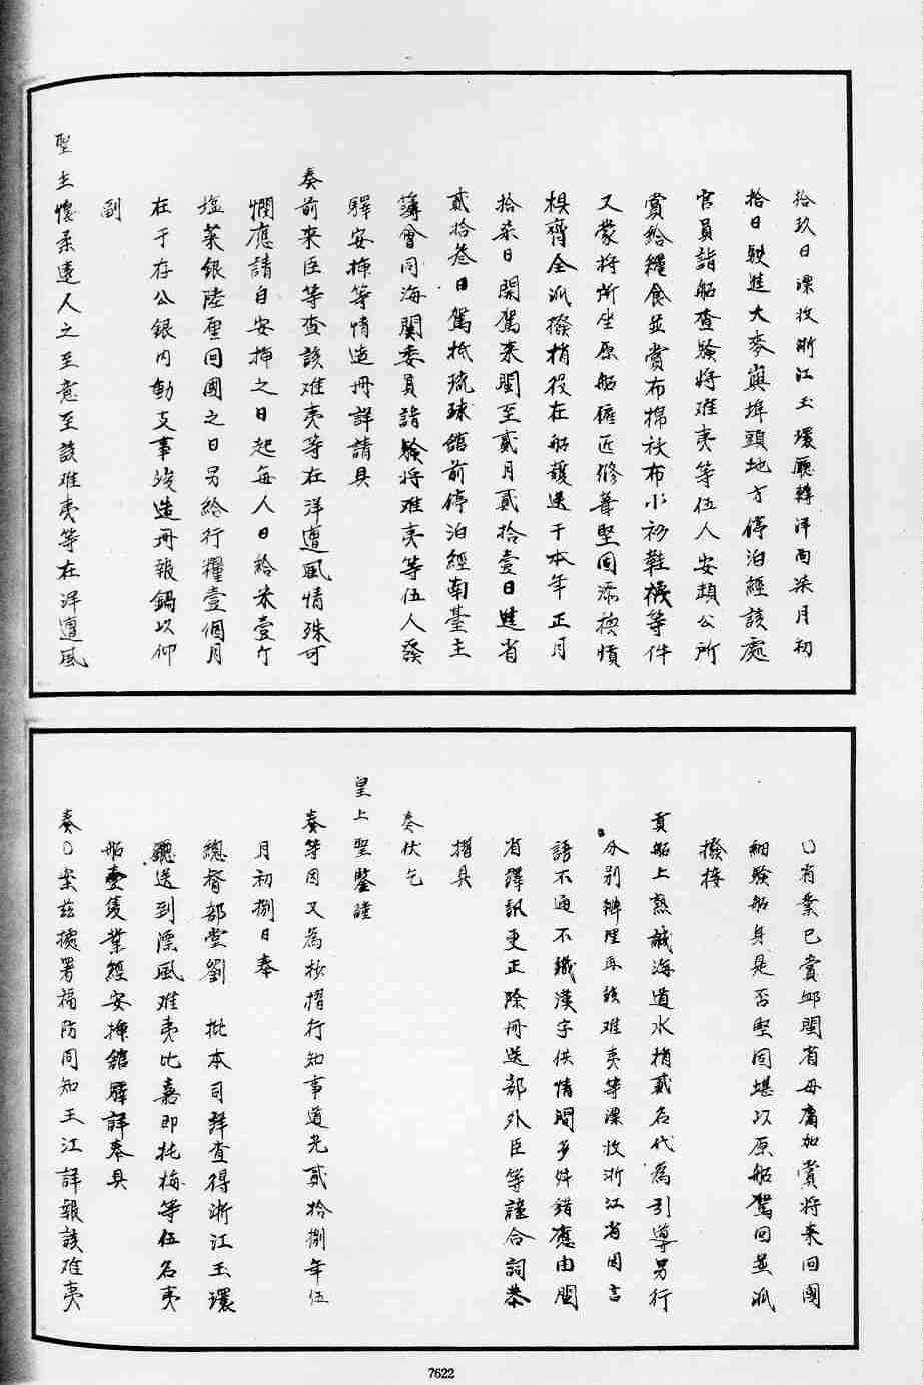 拾玖日漂收浙江玉環廳轄洋面柒月初
拾日駛進大麥嶼埠頭地方停泊經該處
官員詣船查驗將難夷等伍人安頓公所
賞給糧食並賞布棉衣布小衫鞋襪等件
又蒙將所坐原船僱匠修葺堅固添換槓
椇齊全派撥梢役在船護送于本年正月
拾柒日開駕來閩至貳月貳拾壹日進省
貳拾叁日駕抵琉球館前停泊經南臺主
簿會同海關委員詣驗將难夷等伍人發
驛安揷等情造冊詳請具
奏前來臣等查該难夷等在洋遭風情殊可
憫應請自安揷之日起每人日給米壹升
塩菜銀陸厘回國之日另給行糧壹個月
在于存公銀內動支事竣造冊報銷以仰
副
聖主懷柔遠人之至意至該难夷等在洋遭風
業已賞卹閩省毋庸加賞將來回國
細驗船身是否堅固堪以原船駕回並派
撥接
貢船上熟諳海道水梢貳名代為引導另行
分別辦理再該难夷等漂收浙江省因言
語不通不識漢字供情間多舛錯應由閩
省譯訊更正除冊送部外臣等謹合詞恭
摺具
奏伏乞
皇上聖鑒謹
奏等因又為抄摺行知事道光貳拾捌年伍
月初捌日奉
總督部堂劉 批本司詳查得浙江玉環
廳送到漂風难夷比嘉即托梅等伍名夷
船壹隻業經安揷館驛詳奉具
奏在案茲據署福防同知王江詳報該难夷
7622